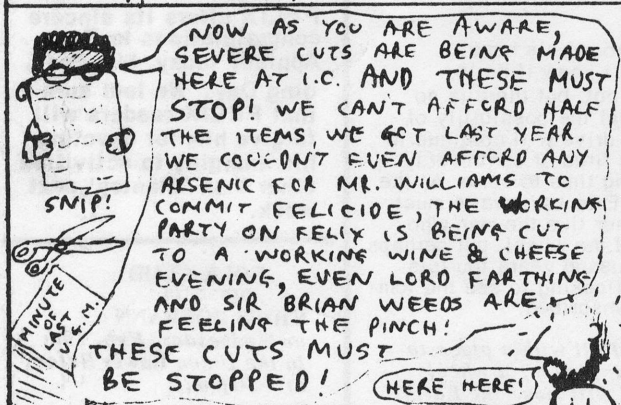 NOW AS YOU ARE AWARE,
SEVERE CUTS ARE BEING MADE
HERE AT I.C. AND THESE MUST
STOP! WE CAN'T AFFORD HALF
THE ITEMS, WE GOT LAST YEAR.
WE COULDNT EVEN AFFORD ANY
ARSENIC FOR MR. WILLIAMS TO
COMMIT FELICIDE, THE WORKING
PARTY ON FELIX IS BEING CUT
TO A WORKING WINE & CHEESE
EVENING, EVEN LORD FARTHING
AND SIR BRIAN WEEDS ARE
FEELING THE PINCH!
THESE CUTS MUST
BE STOPPED!
SNIP!
MINUTE
OF
LAST
U.G.M.
HERE HERE!